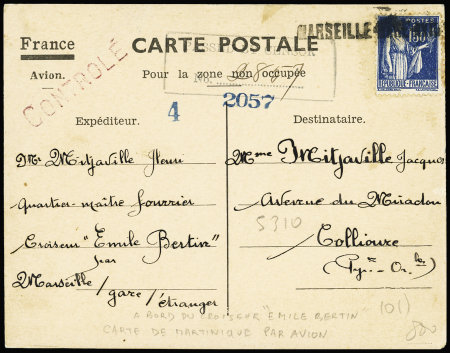 France
CARTE POSTALE
MARSEILLE
POSTES
REPUBLIQUE FRANÇAISE
Avion.
Pour la zone non occupée
CONTRÔLÉ
No.
4
2057
Expéditeur.
Destinataire.
Mr Mitjaville Henri
Quartier-maître fourrier
Croiseur "Emile Bertin"
par
Marseille/gare/étranger
Mme Mitjaville Jacques
Avenue du Miradou
5310
Collioure
(Pyr-Or.les)
A BORD DU CROISEUR "EMILE BERTIN
CARTE DE MARTINIQUE PAR AVION
(01)
800